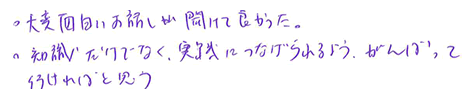 ○大変面白いお話しが聞けて良かった。
○知識だけでなく、実践につなげられるよう、がんばって
行ければと思う